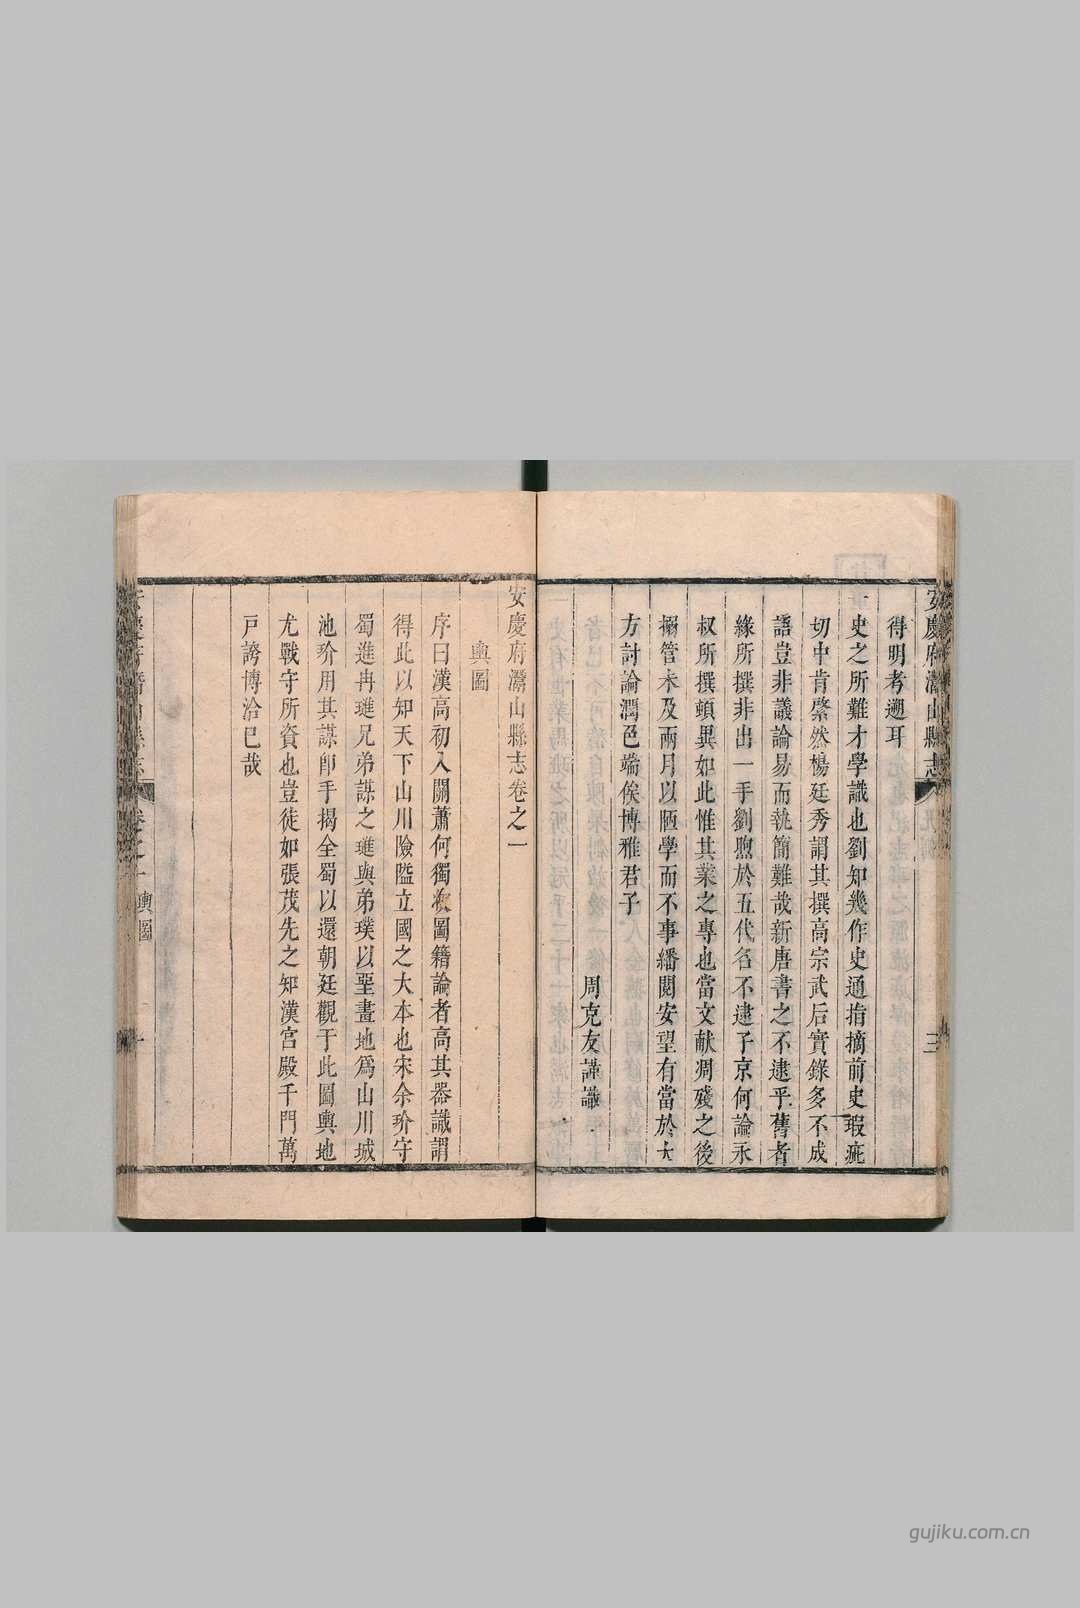 安慶府潛山縣志
三
得明考遡耳
一史之所難才學識也劉知幾作史通指摘前史瑕疵
切中肯綮然楊廷秀謂其撰高宗武后實錄多不成
語豈非議論易而執簡難哉新唐書之不逮乎舊者
緣所撰非出一手劉煦於五代名不逮子京何論永
叔所撰頓異如此惟其業之專也當文献凋殘之後
搦管未及兩月以陋學而不事繙閱安望有當於大
方討論潤色端俟博雅君子
周克友謹識
安慶府潛山縣志卷之一
輿圖
序曰漢高初入關蕭何獨收圖籍論者高其器識謂
得此以知天下山川險隘立國之大本也宋余玠守
蜀進冉璡兄弟謀之璡與弟璞以堊畫地爲山川城
池玠用其謀卽手揭全蜀以還朝廷觀于此圖輿地
尤戰守所資也豈徒如張茂先之知漢宮殿千門萬
戸誇博洽已哉
卷之一 輿圖
一
gujiku.com.cn